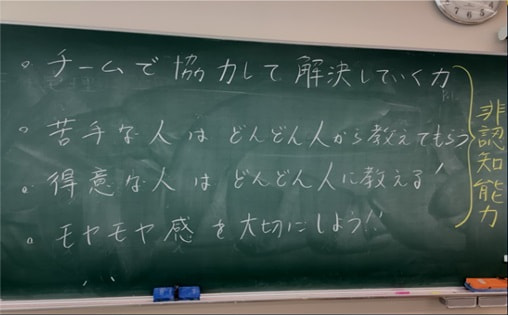 。チームで協力して解決していく力
。苦手な人はどんどん人から教えてもらう
。得意な人はどんどん人に教える!
。モヤモヤ感を大切にしよう!!
非認知能力